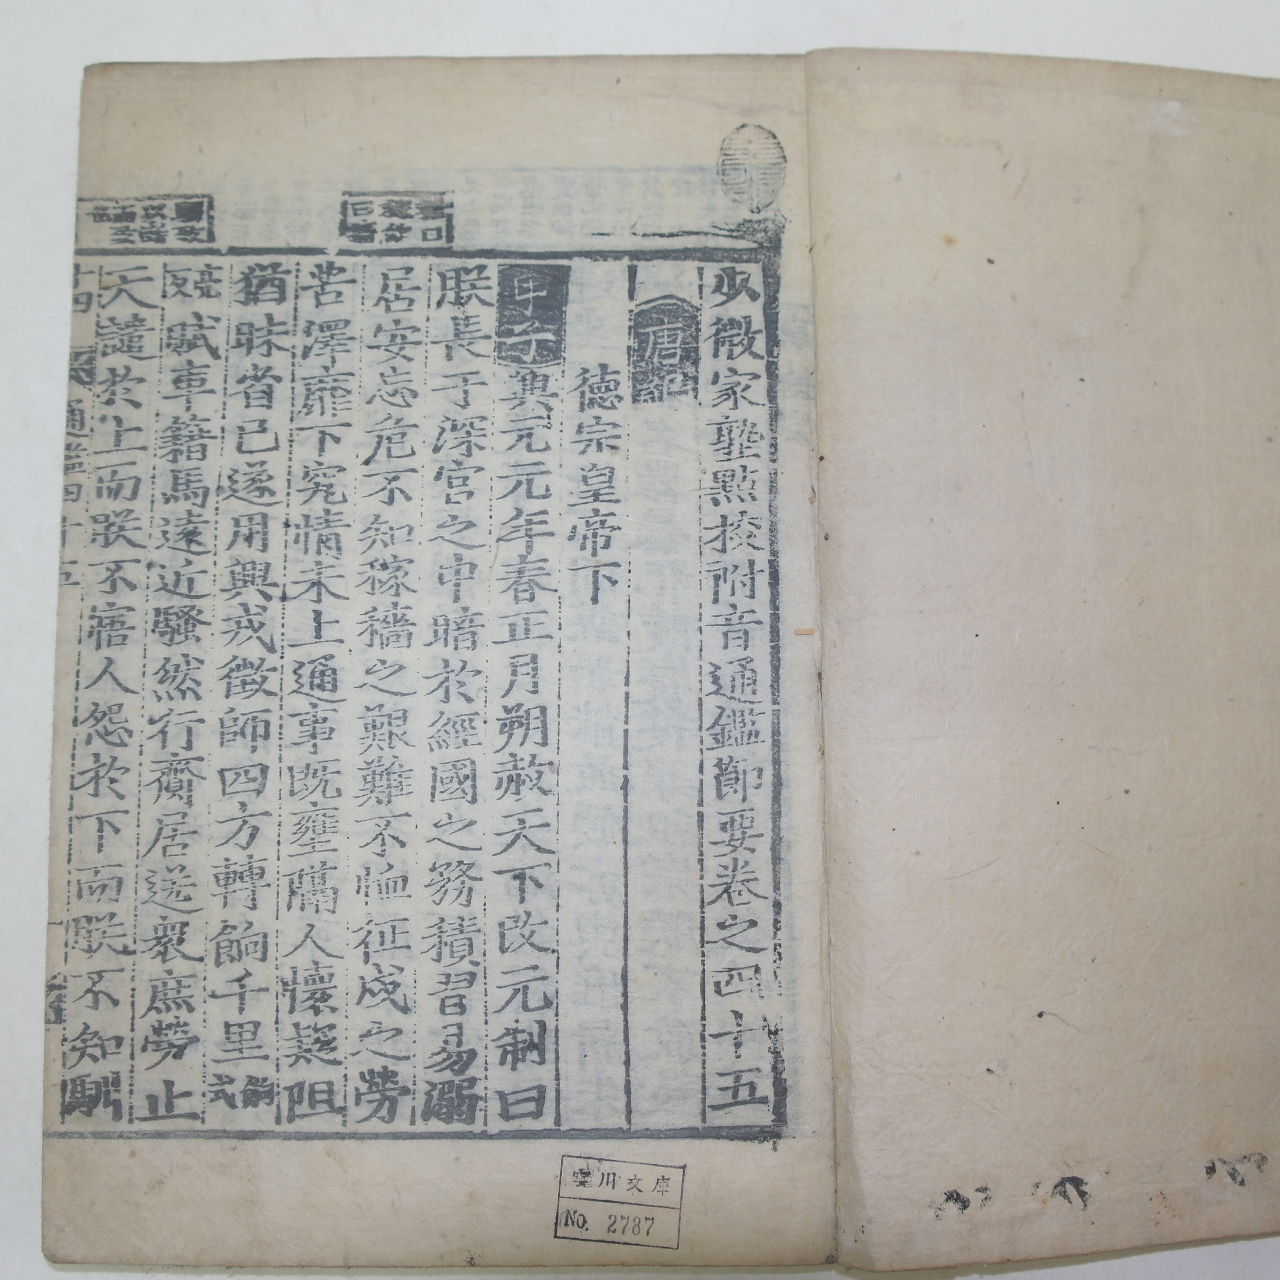 少微家塾點校附音通鑑節要卷之四十五
唐紀
德宗皇帝下
甲子興元元年春正月朔赦天下改元制曰
朕長于深宮之中暗於經國之務積習易溺
居安忘危不知稼穡之艱難不恤征戍之勞
苦澤靡下究情未上通事旣壅隔人懷疑阻
猶昧省己遂用興戎徵師四方轉餉千里式餉
亮反賦車籍馬遠近騷然行齎居送衆庶勞止
天譴於上而朕不寤人怨於下而朕不知馴
通鑑四十五
川文庫
No. 2787